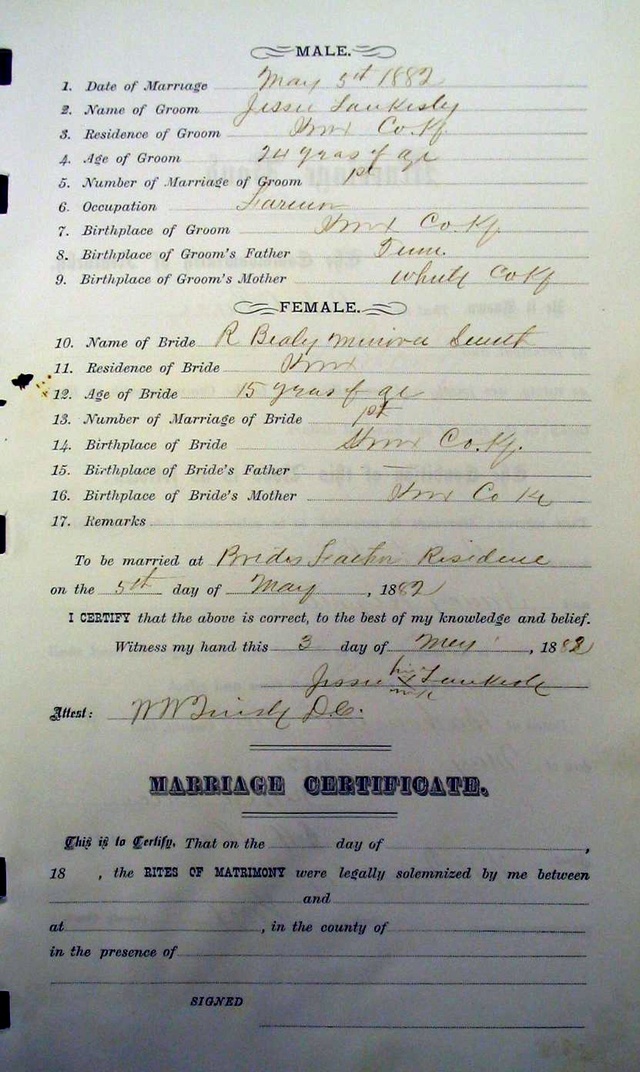 MALE.
1. Date of Marriage May 5th 1882
2. Name of Groom Jessie Lankisly
3. Residence of Groom Knox Co. Ky.
4. Age of Groom 24 years of age
5. Number of Marriage of Groom 1st
6. Occupation Farmer
7. Birthplace of Groom Knox Co. Ky.
8. Birthplace of Groom's Father Tenn.
9. Birthplace of Groom's Mother Co Ky
FEMALE.
10. Name of Bride R
11. Residence of Bride Knox
12. Age of Bride 15 years of age
13. Number of Marriage of Bride 1st
14. Birthplace of Bride Knox Co. Ky.
15. Birthplace of Bride's Father
16. Birthplace of Bride's Mother Knox Co Ky
17. Remarks
To be married at Brides Residence
on the 5th day of May, 1882
I CERTIFY that the above is correct, to the best of my knowledge and belief.
Witness my hand this 3 day of May, 1882
his
Jessie X
mark
Attest: W W D.C.
MARRIAGE CERTIFICATE.
This is to Certify, That on the day of ,
18 , the RITES OF MATRIMONY were legally solemnized by me between
and
at , in the county of
in the presence of
SIGNED